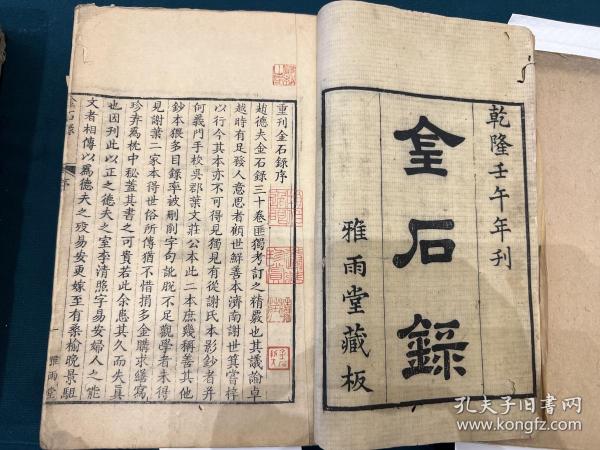 乾隆壬午年刊
金石錄
雅雨堂藏板
重刊金石錄序
趙德夫金石錄三十卷匪獨考訂之精覈也其議論卓
越時有足發人意思者顧世鮮善本濟南謝世箕嘗梓
以行今其本亦不可得獨見有從謝氏本影鈔者并
何義門手校吳郡葉文莊公本此二本庶幾稱善其他
鈔本猥多目錄率被刪削字句訛脫不足觀學者未得
見謝葉二家本得世俗所傳猶不惜捐多金購求繕寫
珍弆為枕中秘蓋其書之可貴若此余患其久而失真
也因刊此以正之德夫之室李清照字易安婦人之能
文者相傳以為德夫之歿易安更嫁至有桑榆晚景駔
金石錄 序 一 雅雨堂
孔夫子旧书网
www.kongfz.com